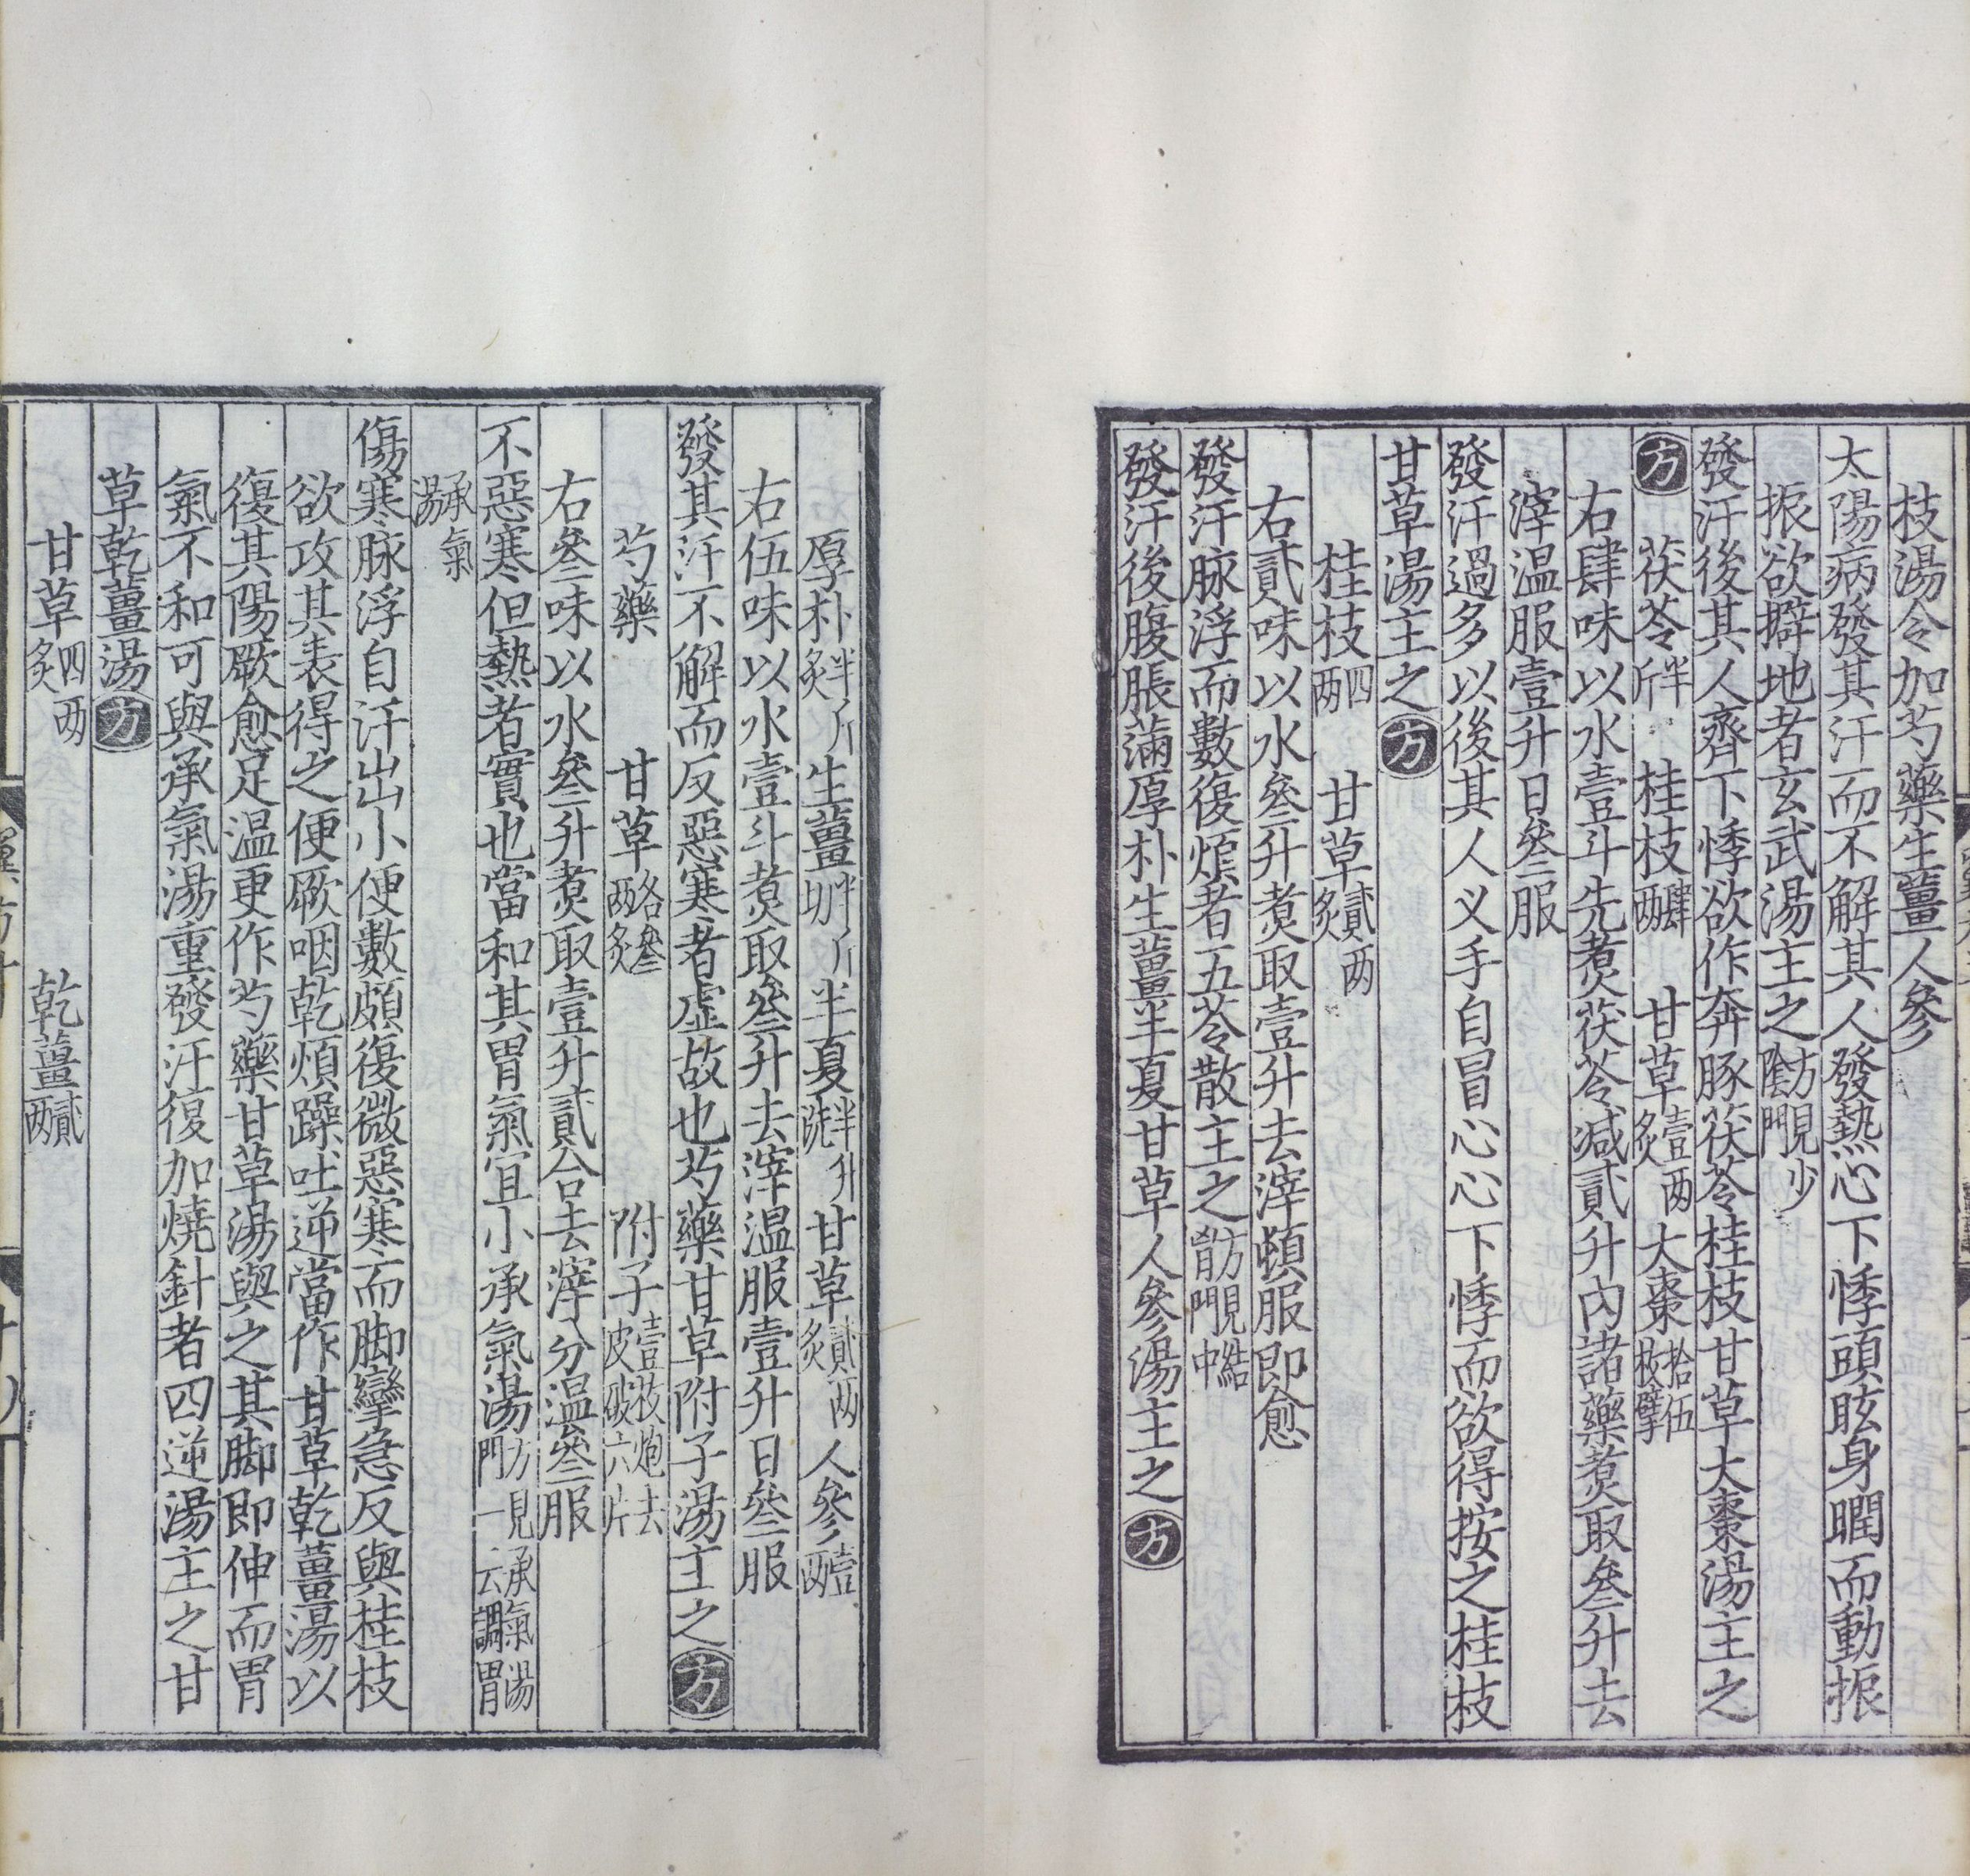 枝湯令加芍藥生薑人參
太陽病發其汗而不解其人發熱心下悸頭眩身瞤而動振
振欲擗地者玄武湯主之方見少陰門
發汗後其人齊下悸欲作奔豚茯苓桂枝甘草大棗湯主之
方
茯苓半斤 桂枝肆兩 甘草壹兩炙 大棗拾伍枚擘
右肆味以水壹斗先煮茯苓減貳升內諸藥煮取叄升去
滓溫服壹升日叄服
發汗過多以後其人义手自冒心心下悸而欲得按之桂枝
甘草湯主之方
桂枝四两 甘草貳两炙
右貳味以水叄升煮取壹升去滓頓服即愈
發汗脉浮而數復煩者五苓散主之方見結胷門中
發汗後腹脹滿厚朴生薑半夏甘草人參湯主之方
厚朴半斤炙 生薑半斤切 半夏半升洗 甘草貳两炙 人參壹两
右伍味以水壹斗煮取叄升去滓溫服壹升日叄服
發其汗不解而反惡寒者虛故也芍藥甘草附子湯主之方
芍藥 甘草各叄两炙 附子壹枚炮去皮破六片
右叄味以水叄升煮取壹升貳合去滓分溫叄服
不惡寒但熱者實也當和其胃氣宜小承氣湯方見承氣湯門一云調胃
承氣湯
傷寒脉浮自汗出小便數頗復微惡寒而脚攣急反與桂枝
欲攻其表得之便厥咽乾煩躁吐逆當作甘草乾薑湯以
復其陽厥愈足溫更作芍藥甘草湯與之其脚即伸而胃
氣不和可與承氣湯重發汗復加燒針者四逆湯主之甘
草乾薑湯方
甘草四两炙 乾薑貳两